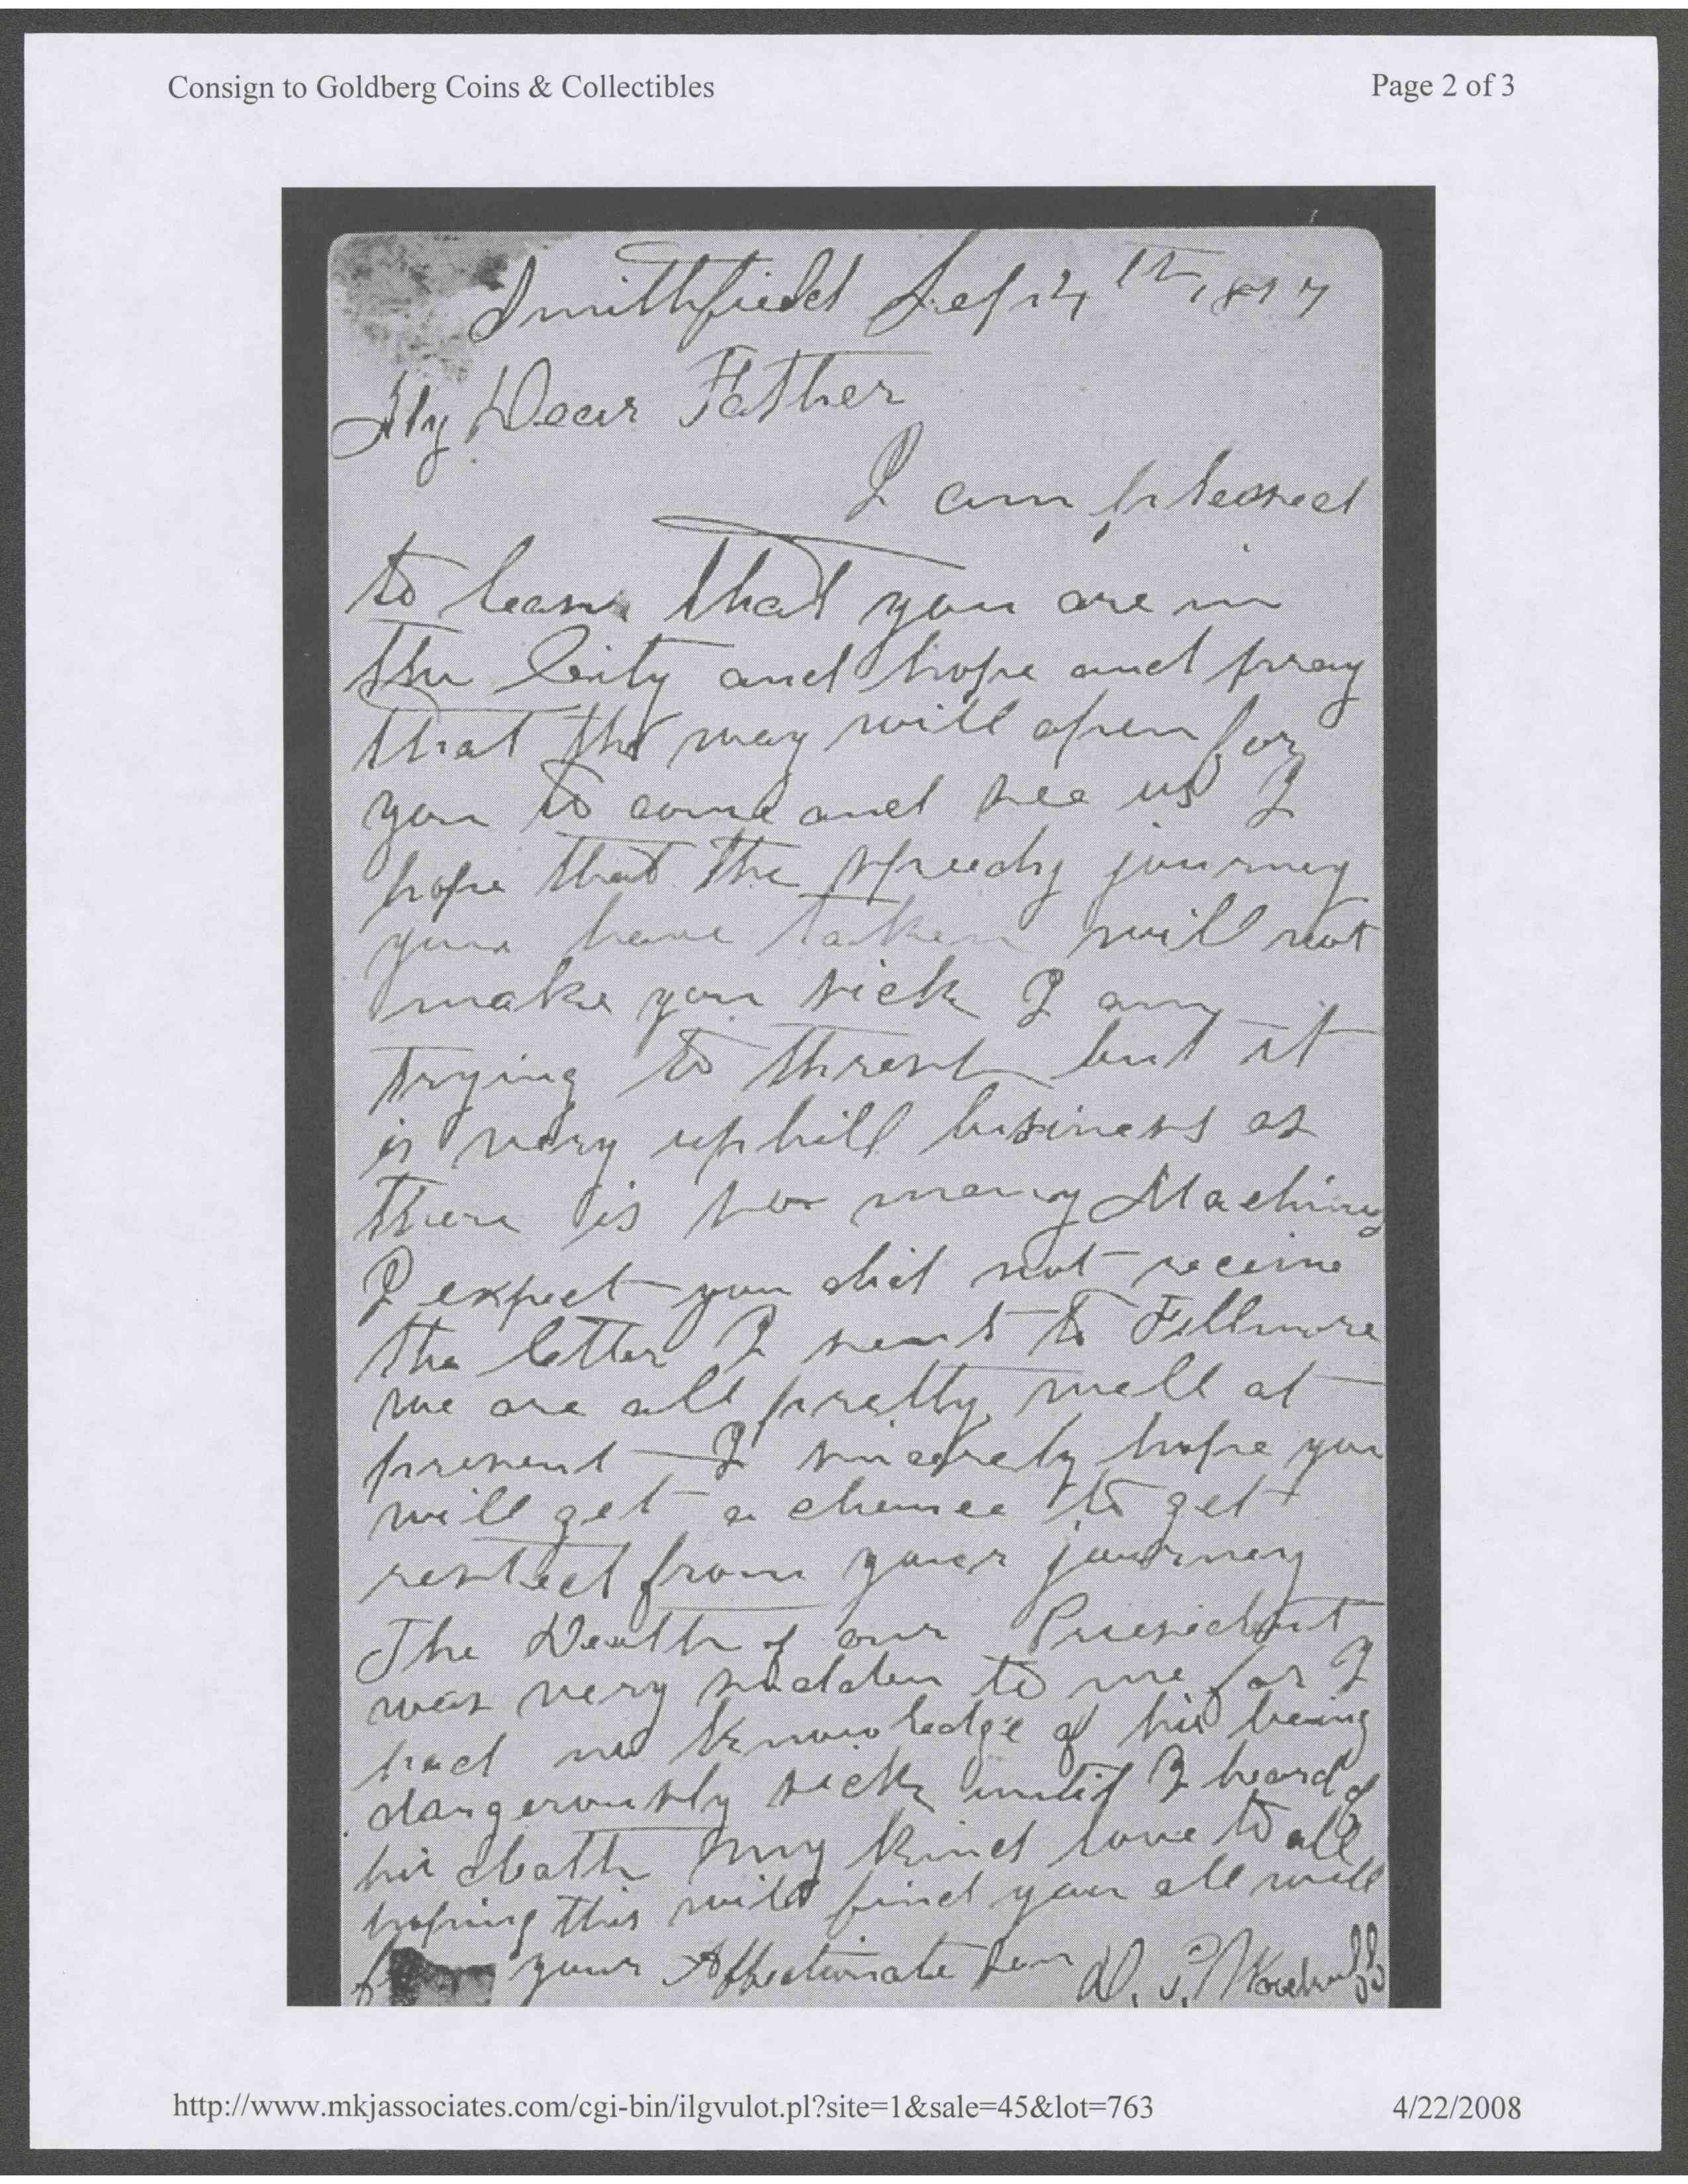 Consign to Goldberg Coins & Collectibles
Page 2 of 3
Smithfield Sep 14th, 1877
My Dear Father
I am pleased
to learn that you are in
the City and hope and pray
that the way will open for
you to come and see us I
hope that the speedy journey
you have taken will not
make you sick I am
trying to thresh but it
is very uphill business as
there is so many Machines
I expect you did not receive
the letter I sent to Fillmore
we are all pretty well at
present I sincerely hope you
will get a chance to get
rested from your journey
The Death of our President
was very sudden to me for I
had no knowledge of his being
dangerously sick until I heard of
his death my kind love to all
hoping this will find you all well
your Affectionate Son
http://www.mkjassociates.com/cgi-bin/ilgvulot.pl?site=1&sale=45&lot=763
4/22/2008